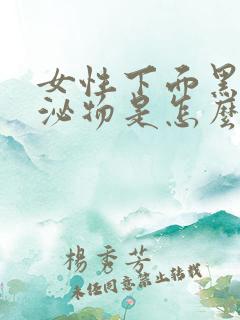 女性下面黑
泌物是怎麼
楊秀芳
未経同意禁止转载